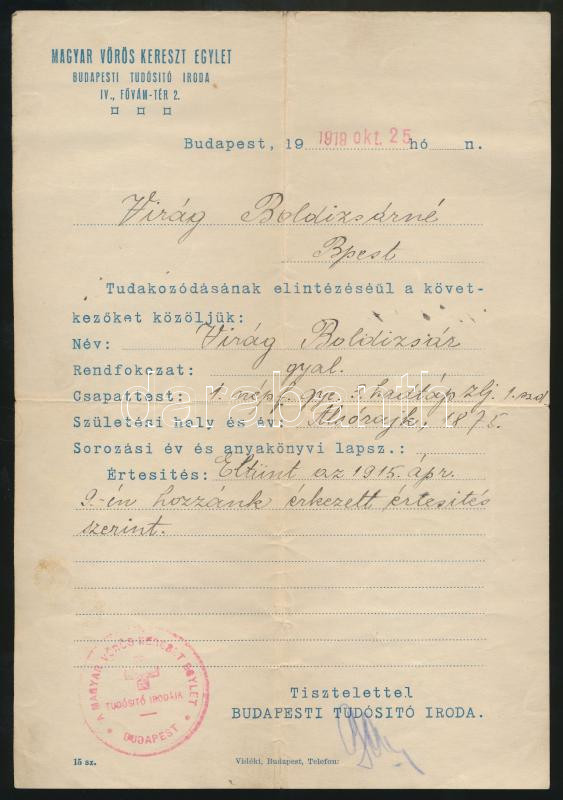 MAGYAR VÖRÖS KERESZT EGYLET
BUDAPESTI TUDÓSITÓ IRODA
IV., FŐVÁM-TÉR 2.
Budapest, 19 1919 okt. 25 hó n.
Virág Boldizsárné
Bpest
Tudakozódásának elintézéséül a követ-
kezőket közöljük:
Név: Virág Boldizsár
Rendfokozat: gyal.
Csapattest: 1. népf. gye. 3. zlj. 1. szd.
Születési hely és év: Alsórajk, 1875.
Sorozási év és anyakönyvi lapsz.:
Értesités: Eltünt az 1915. ápr.
9.-én hozzánk érkezett értesités
szerint.
A MAGYAR VÖRÖS KERESZT EGYLET
TUDÓSITÓ IRODÁJA
BUDAPEST
Tisztelettel
BUDAPESTI TUDÓSITÓ IRODA.
15 sz.
Vidéki, Budapest, Telefon:
darabanth